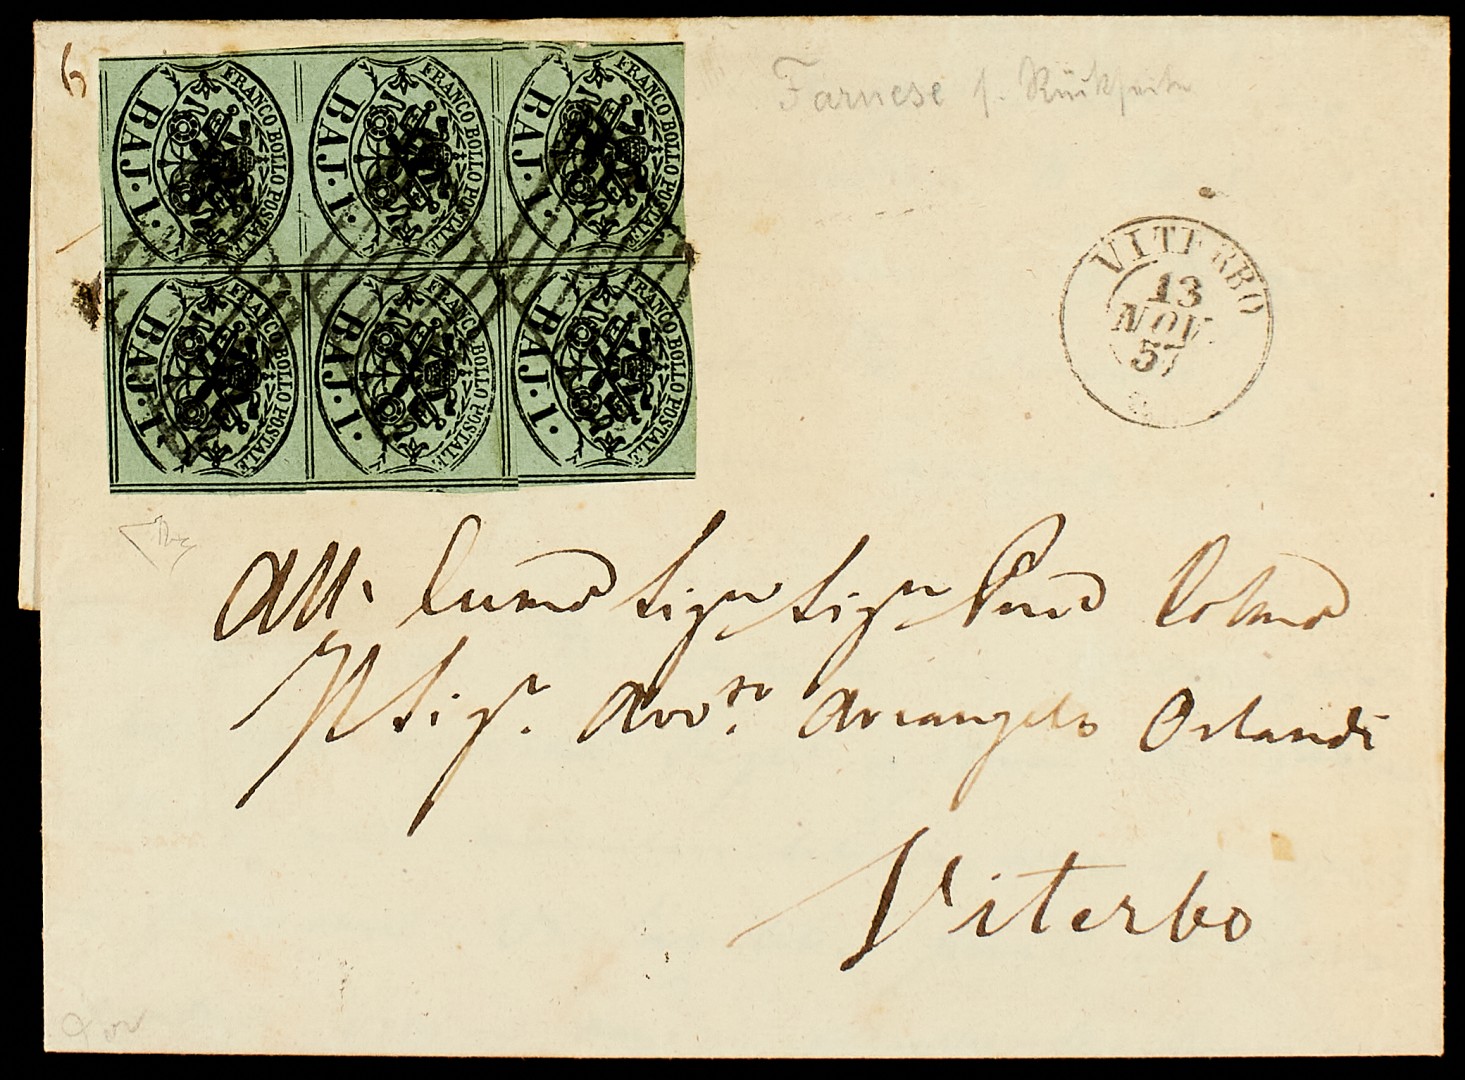 6
FRANCO BOLLO POSTALE
BAJ. 1.
FRANCO BOLLO POSTALE
BAJ. 1.
FRANCO BOLLO POSTALE
BAJ. 1.
FRANCO BOLLO POSTALE
BAJ. 1.
FRANCO BOLLO POSTALE
BAJ. 1.
FRANCO BOLLO POSTALE
BAJ. 1.
Farnese s. Rückseite
VITERBO
13
NOV
57
All. Sigr Sigr
Sigr. Avvto. Arcangelo Orlandi
Viterbo